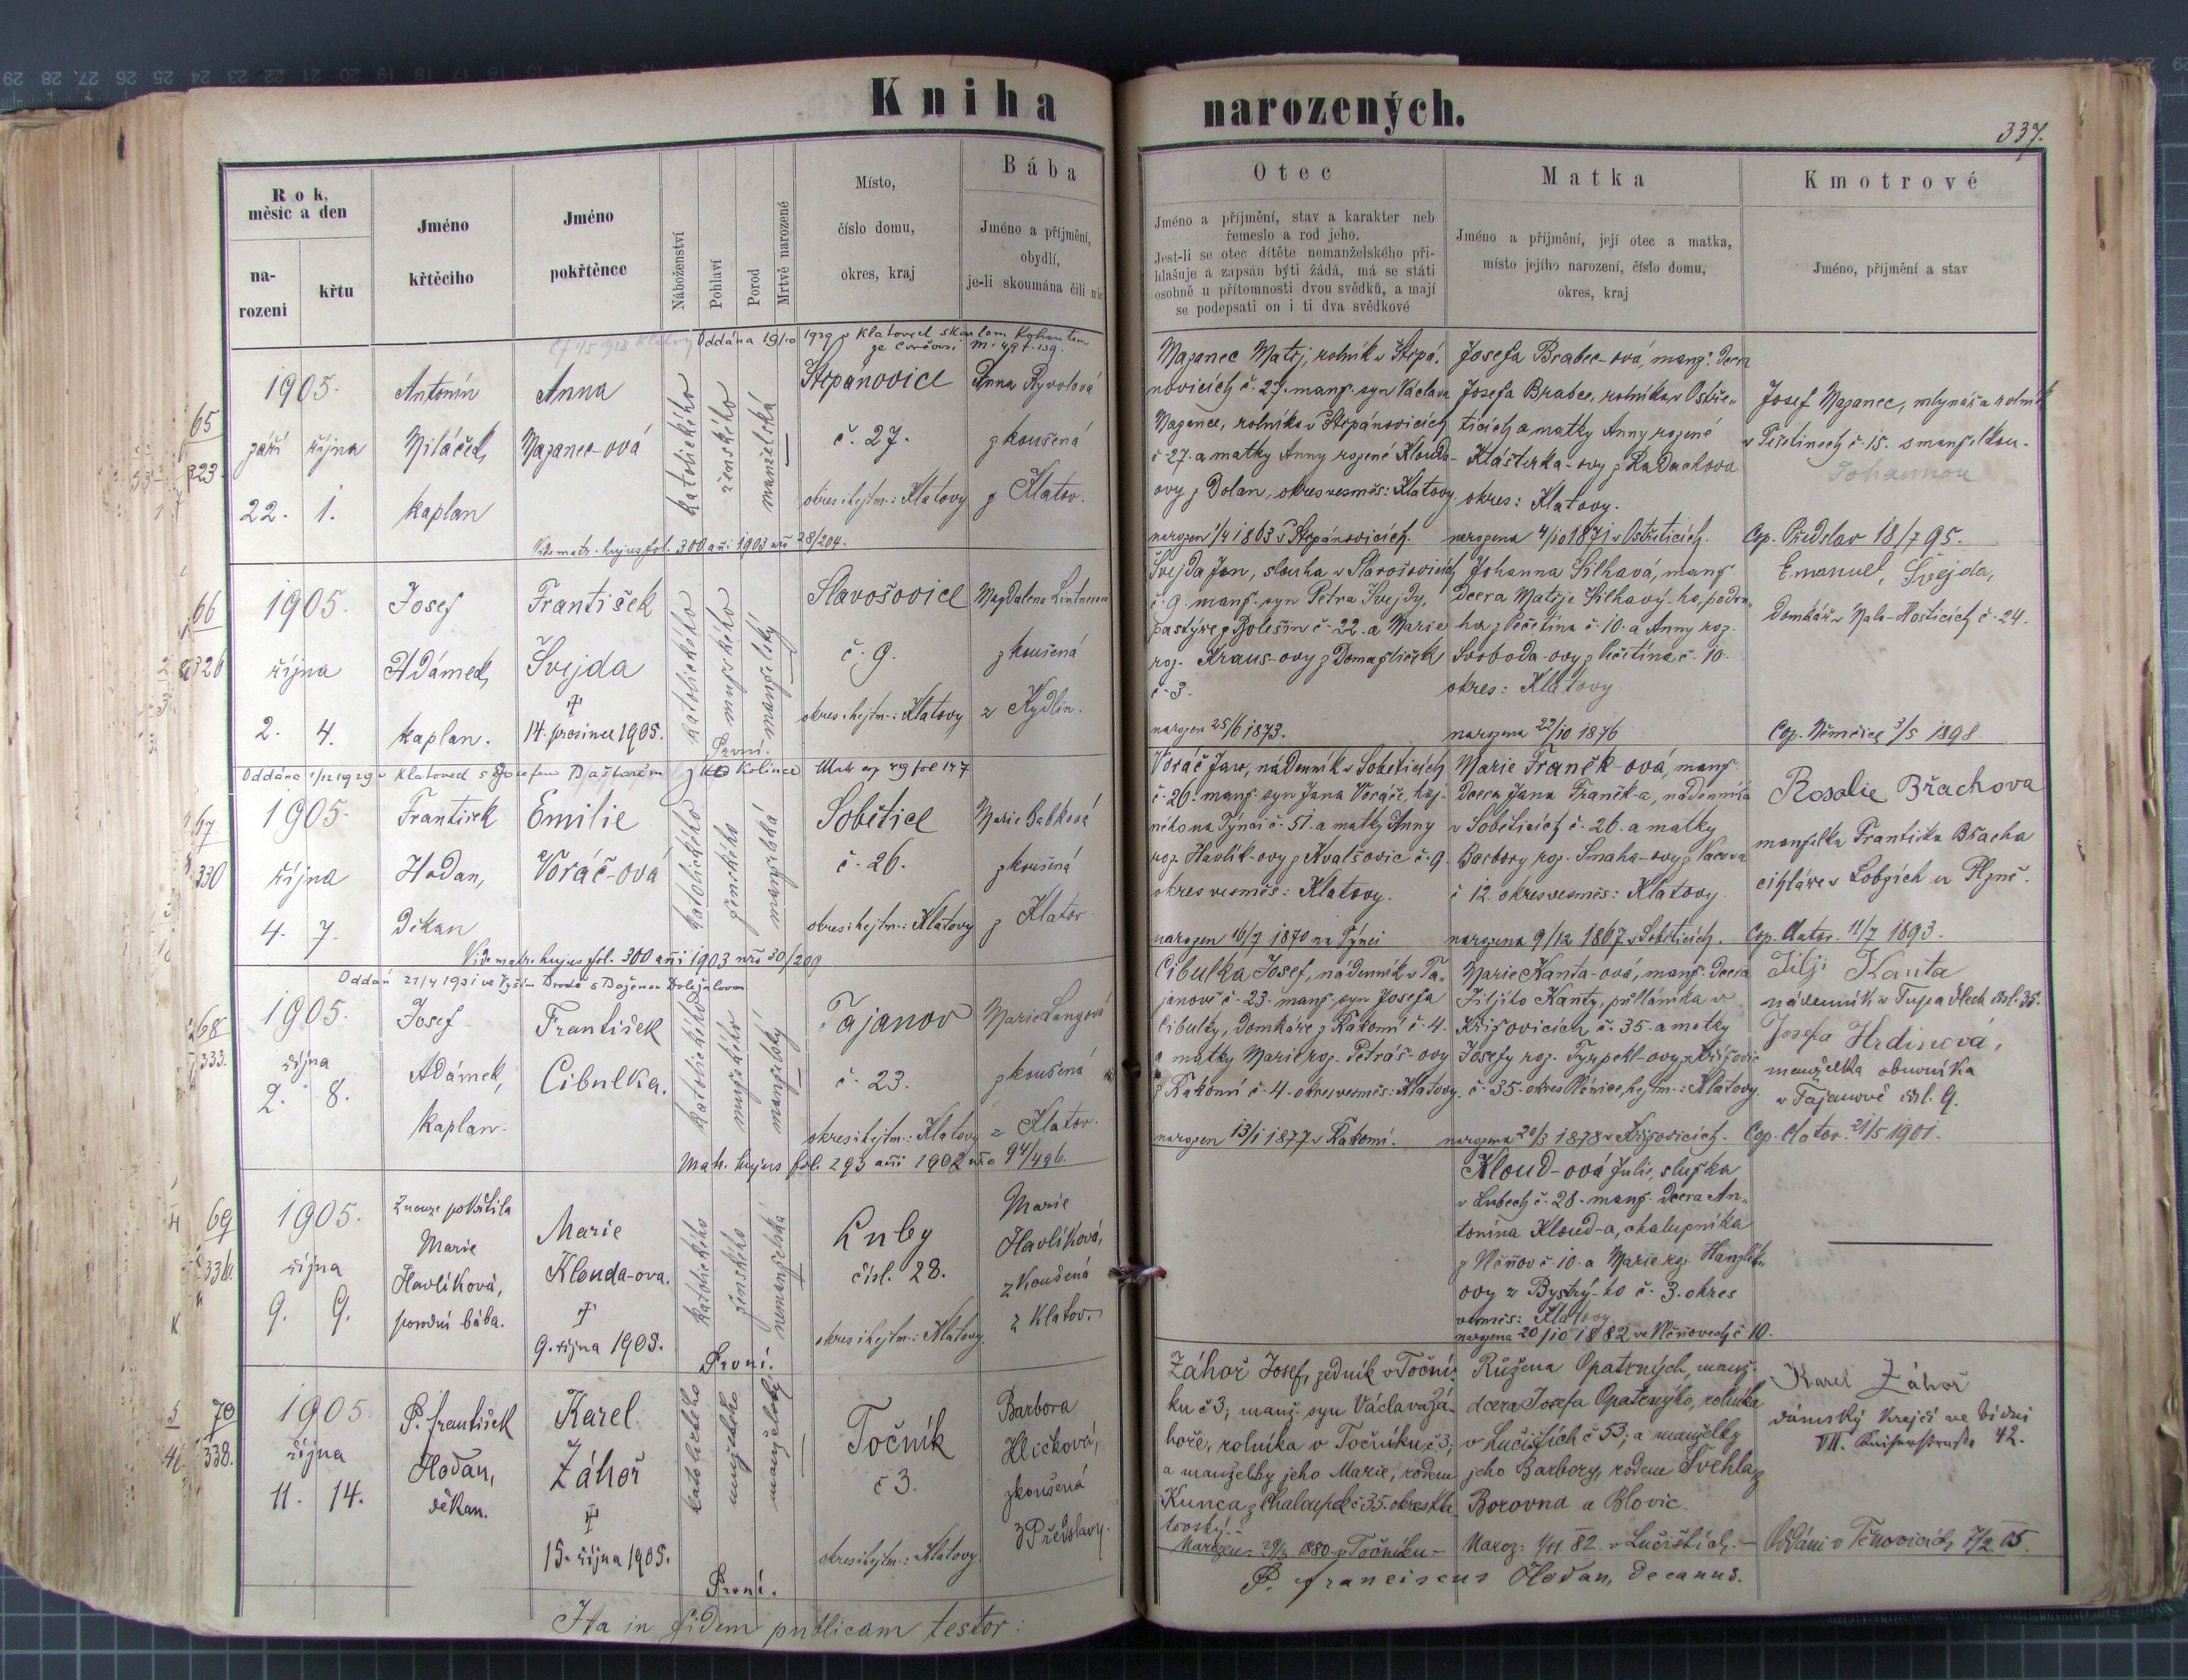 Kniha narozených.
337.
Rok, měsíc a den
na-
rozeni
křtu
Jméno
křtěcího
Jméno
pokřtěnce
Náboženství
Pohlaví
Porod
Mrtvě narozené
Místo,
číslo domu,
okres, kraj
Bába
Jméno a příjmění,
obydlí,
je-li skoumána čili nic
Otec
Jméno a příjmění, stav a karakter neb
řemeslo a rod jeho.
Jest-li se otec dítěte nemanželského při-
hlašuje a zapsán býti žádá, má se státi
osobně u přítomnosti dvou svědků, a mají
se podepsati on i ti dva svědkové
Matka
Jméno a příjmění, její otec a matka,
místo jejího narození, číslo domu,
okres, kraj
Kmotrové
Jméno, příjmění a stav
Oddána 19/10 1929 v Klatovech s Karlem Kohoutem
65
323.
1905.
září října
22. 1.
Antonín
Miláček,
kaplan
Anna
Maganec-ová
katolického
ženského
manželská
Štěpánovice
č. 27.
okres i hejtm.: Klatovy
Anna Ryvolová
zkoušená
z Klatov.
Maganec Matěj, rolník v Štěpá-
novicích č. 27. manž. syn Václava
Magance, rolníka v Štěpánovicích
č. 27. a matky Anny rozené Klouda-
ovy z Dolan, okres vesměs: Klatovy.
narozen 1/4 1863 v Štěpánovicích.
Josefa Brabec-ová, manž. dcera
Josefa Brabce, rolníka v Ostře-
ticích a matky Anny rozené
Klásterka-ovy z Radachova
okres: Klatovy.
narozena 4/10 1871 v Ostřeticích.
Josef Maganec, mlynář a rolník
v Pečetinech č. 15. s manželkou.
Johannou
Cop. Předslav 18/7 95.
Vide matr. hujus fol. 300 añi 1903 nro 28/204.
66
326
1905.
října
2. 4.
Josef
Adámek,
kaplan.
František
Švejda
14. prosince 1905.
katolického
mužského
manželský
První.
Slavošovice
č. 9.
okres i hejtm.: Klatovy
Magdalena
zkoušená
z Kydlin.
Švejda Jan, sluha v Slavošovicích
č. 9. manž. syn Petra Švejdy,
pastýře z Bolešin č. 22. a Marie
roz. Kraus-ovy z Domažliček
č. 3.
narozen 25/6 1873.
Johanna Šilhavá, manž.
dcera Matěje Šilhavý-ho, podru-
ha z Pečetína č. 10. a Anny roz.
Svoboda-ovy z Pečetína č. 10.
okres: Klatovy
narozena 22/10 1876
Emanuel Švejda,
domkář v Malo-Hosticích č. 24.
Cop. Němčice 3/5 1898
Oddána 1/12 1929 v Klatovech s Josefem z Kolince
67
330
1905.
října
4. 7.
František
Hodan,
děkan
Emilie
Voráč-ová
katolického
ženského
manželská
Sobětice
č. 26.
okres i hejtm.: Klatovy
Marie Babková
zkoušená
z Klatov
Voráč Jan, nádenník v Sobětících
č. 26. manž. syn Jana Voráče, haj-
ného na Týnci č. 51. a matky Anny
roz. Havlík-ovy z Kvalšovic č. 9
okres vesměs: Klatovy.
narozen 16/7 1870 na Týnci
Marie Franěk-ová, manž.
dcera Jana Franěk-a, nádenníka
v Sobětících č. 26. a matky
Barbory roz. Smaha-ovy z Vacova
č 12. okres vesměs: Klatovy.
narozena 9/12 1867 v Sobětících.
Rosalie Břachova
manželka Františka Břacha
cihláře v Lobzích u Plzně.
Cop. Clatov. 11/7 1893.
Vide matr. hujus fol. 300 añi 1903 nro 30/209
Oddán 21/4 1931 ve Vyšším Brodě s Boženou Dolejšlovou
68
333.
1905.
října
2. 8.
Josef
Adámek,
kaplan.
František
Cibulka.
katolického
mužského
manželský
Tajanov
č. 23.
okres i hejtm.: Klatovy
Marie Langová
zkoušená
z Klatov.
Cibulka Josef, nádenník v Ta-
janově č. 23. manž. syn Josefa
Cibulky, domkáře z Kakomí č. 4.
a matky Marie roz. Petráš-ovy
z Kakomí č. 4. okres vesměs: Klatovy.
narozen 13/1 1877 v Kakomí.
Marie Kanta-ová, manž. dcera
Jiljího Kanty, půlláníka v
Křižovicích č. 35. a matky
Josefy roz. Tyrpekl-ovy z Křižovic
č. 35. okres Plánice, hejtm.: Klatovy.
narozena 20/3 1878 v Křižovicích.
Jiljí Kanta
nádenník v Tupadlech čsl. 35.
Josefa Hrdinová,
manželka obuvníka
v Tajanově čsl. 9.
Cop. Clatov. 21/5 1901.
Matr. hujus fol. 293 añi 1902 nro 94/496.
69
336.
1905.
října
9. 9.
Z nouze pokřtila
Marie
Havlíková,
porodní bába.
Marie
Klouda-ova.
9. října 1905.
katolického
ženského
nemanželská
První.
Luby
čísl. 28.
okres i hejtm.: Klatovy.
Marie
Havlíková,
zkoušená
z Klatov.
Kloud-ová Julie, služka
v Lubech č. 28. manž. dcera An-
tonína Kloud-a, chalupníka
z Něčňov č. 10. a Marie roz. Hanzlík-
ovy z Bystrý-ho č. 3. okres
vesměs: Klatovy
narozena 20/10 1882 č 10.
70
338.
1905.
října
11. 14.
P. František
Hodan,
děkan.
Karel
Záhoř
15. října 1905.
katolického
mužského
manželský
První.
Točník
č 3.
okres i hejtm.: Klatovy.
Barbora
Hličková,
zkoušená
z Předslavy.
Záhoř Josef, zedník v Toční-
ku č 3; manž. syn Václava Zá-
hoře, rolníka v Točníku č 3;
a manželky jeho Marie, rodem
Kunca z Chaloupek č 35. okres Kla-
tovský.
Narozen: 29/2 1880 v Točníku –
Růžena Opatrných, manž.
dcera Josefa Opatrnýho, rolníka
v Lučištích č 53; a manželky
jeho Barbory, rodem Švehla z
Borovna u Blovic.
Naroz: 1/11 82. v Lučištích. –
Karel Záhoř
dámský krejčí ve Vídni
VII. Kaiserstraße 42.
Oddáni v Těnovicích, 7/2 05.
P. Franciscus Hodan, decanus.
Ita in fidem publicam testor: